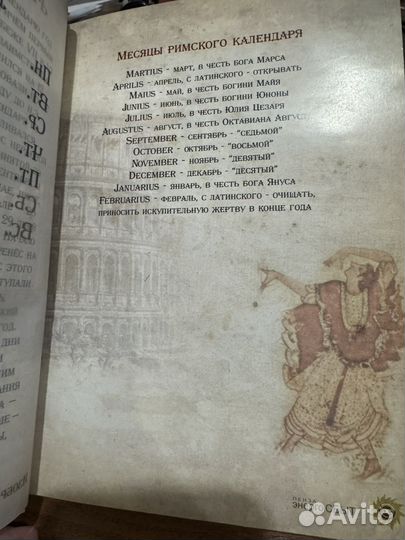 Месяцы римского календаря
Martius - март, в честь бога Марса
Aprilis - апрель, с латинского - открывать
Maius - май, в честь богини Майя
Junius - июнь, в честь богини Юноны
Julius - июль, в честь Юлия Цезаря
Augustus - август, в честь Октавиана Август
September - сентябрь - "седьмой"
October - октябрь - "восьмой"
November - ноябрь - "девятый"
December - декабрь - "десятый"
Januarius - январь, в честь бога Януса
Februarius - февраль, с латинского - очищать,
приносить искупительную жертву в конце года
Пн.
Вт.
Ср.
Чт.
Пт.
Сб
Вс.
этого
тупали
год.
дни
м
тим
ания
а –
ше –
ы.
пенза
Avito